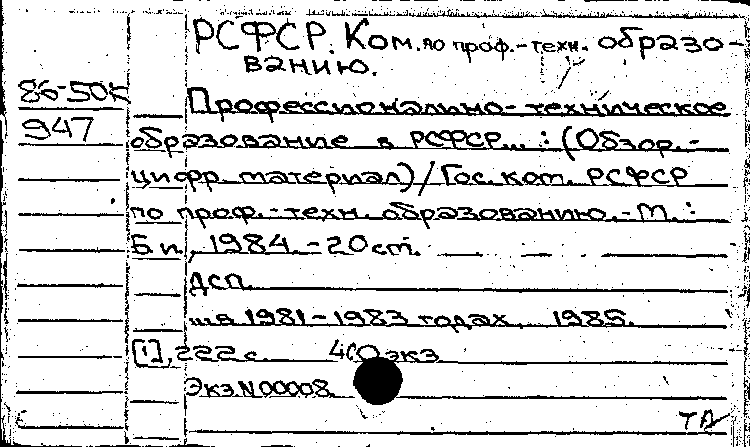 РСФСР. Ком. по проф.-техн. образо-
ванию.
86-50К
947
Профессионально-техническое
образование в РСФСР... : (Обзор.-
цифр. материал) / Гос. ком. РСФСР
по проф.-техн. образованию. - М. :
Б.и., 1984. - 20 см.
ДСП.
на 1981-1983 годах. 1985.
[1], 222 с. 400 экз.
Экз N 00008.
ТД